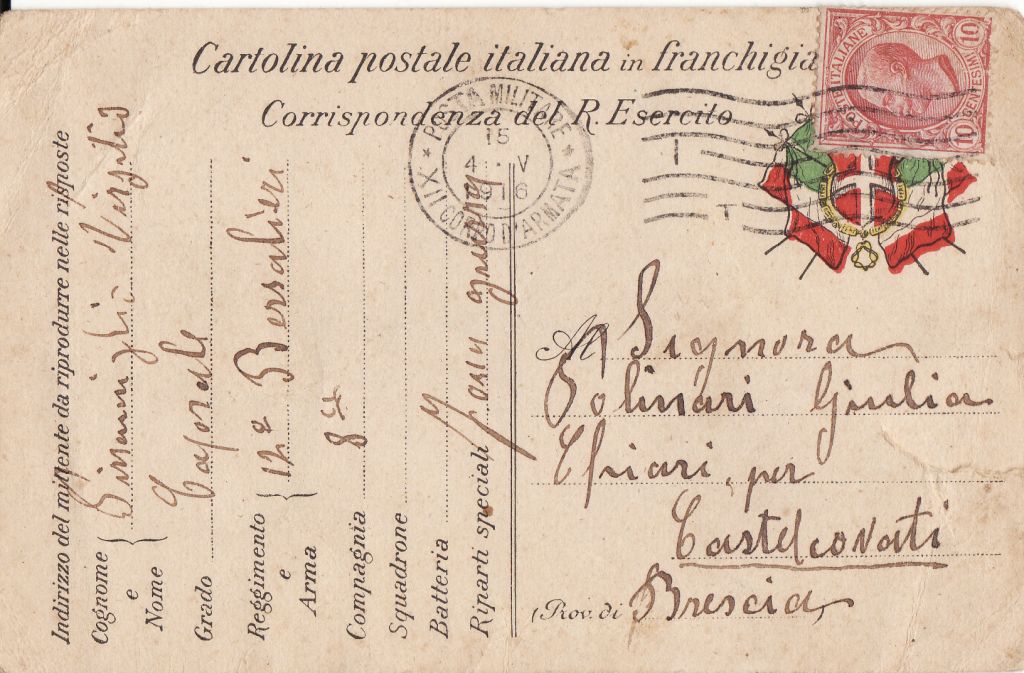 Cartolina postale italiana in franchigia
Corrispondenza del R. Esercito
POSTE ITALIANE
CENTESIMI 10
10
POSTA MILITARE
15
4 - V
1916
XII CORPO D'ARMATA
Al Signora
Polinari Giulia
Chiari, per
Castelcovati
(Prov. di Brescia
Indirizzo del mittente da riprodurre nelle risposte
Cognome e Nome Virgilio
Grado Caporale
Reggimento e Arma 12a Bersaglieri
Compagnia 8a
Squadrone
Batteria
Riparti speciali Zona guerra